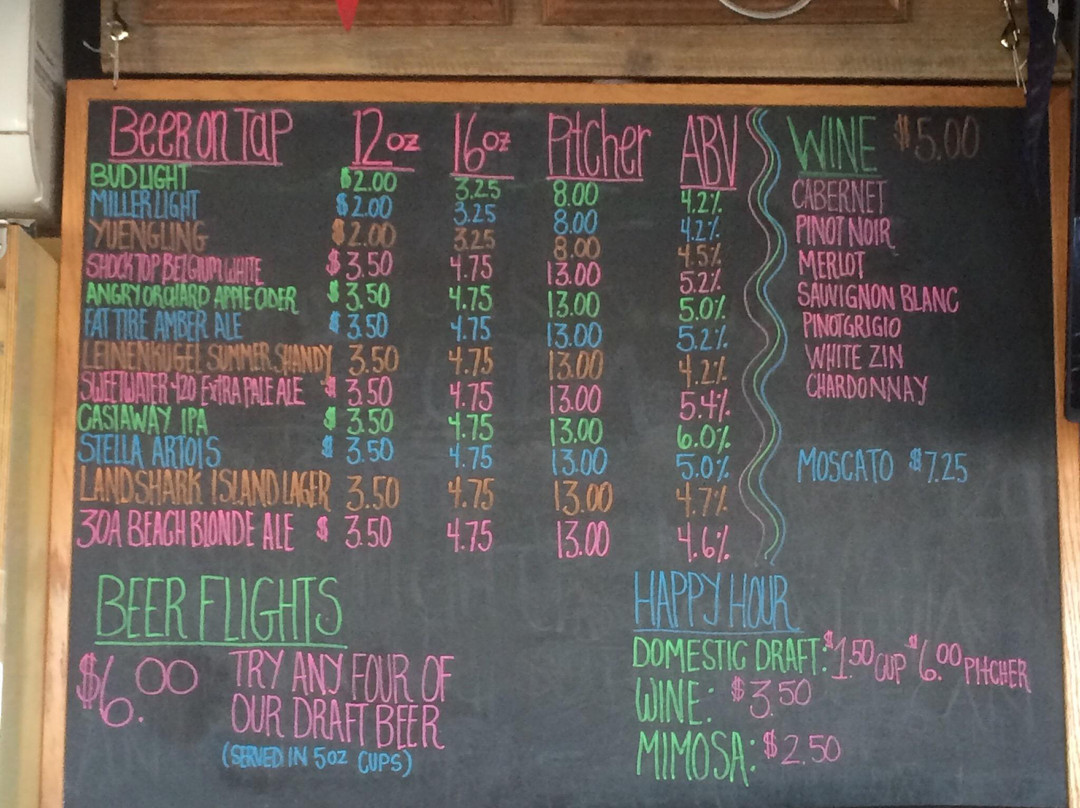 BEER ON TAP 12 oz 16 oz Pitcher ABV
BUD LIGHT $2.00 3.25 8.00 4.2%
MILLER LIGHT $2.00 3.25 8.00 4.2%
YUENGLING $2.00 3.25 8.00 4.5%
SHOCK TOP BELGIUM WHITE $3.50 4.75 13.00 5.2%
ANGRY ORCHARD APPLE CIDER $3.50 4.75 13.00 5.0%
FAT TIRE AMBER ALE $3.50 4.75 13.00 5.2%
LEINENKUGEL SUMMER SHANDY 3.50 4.75 13.00 4.2%
SWEETWATER 420 EXTRA PALE ALE $3.50 4.75 13.00 5.4%
CASTAWAY IPA $3.50 4.75 13.00 6.0%
STELLA ARTOIS $3.50 4.75 13.00 5.0%
LANDSHARK ISLAND LAGER 3.50 4.75 13.00 4.7%
30A BEACH BLONDE ALE $3.50 4.75 13.00 4.6%
WINE $5.00
CABERNET
PINOT NOIR
MERLOT
SAUVIGNON BLANC
PINOT GRIGIO
WHITE ZIN
CHARDONNAY
MOSCATO $7.25
BEER FLIGHTS
$6.00 TRY ANY FOUR OF
OUR DRAFT BEER
(SERVED IN 5oz CUPS)
HAPPY HOUR
DOMESTIC DRAFT: $1.50 CUP $6.00 PITCHER
WINE: $3.50
MIMOSA: $2.50